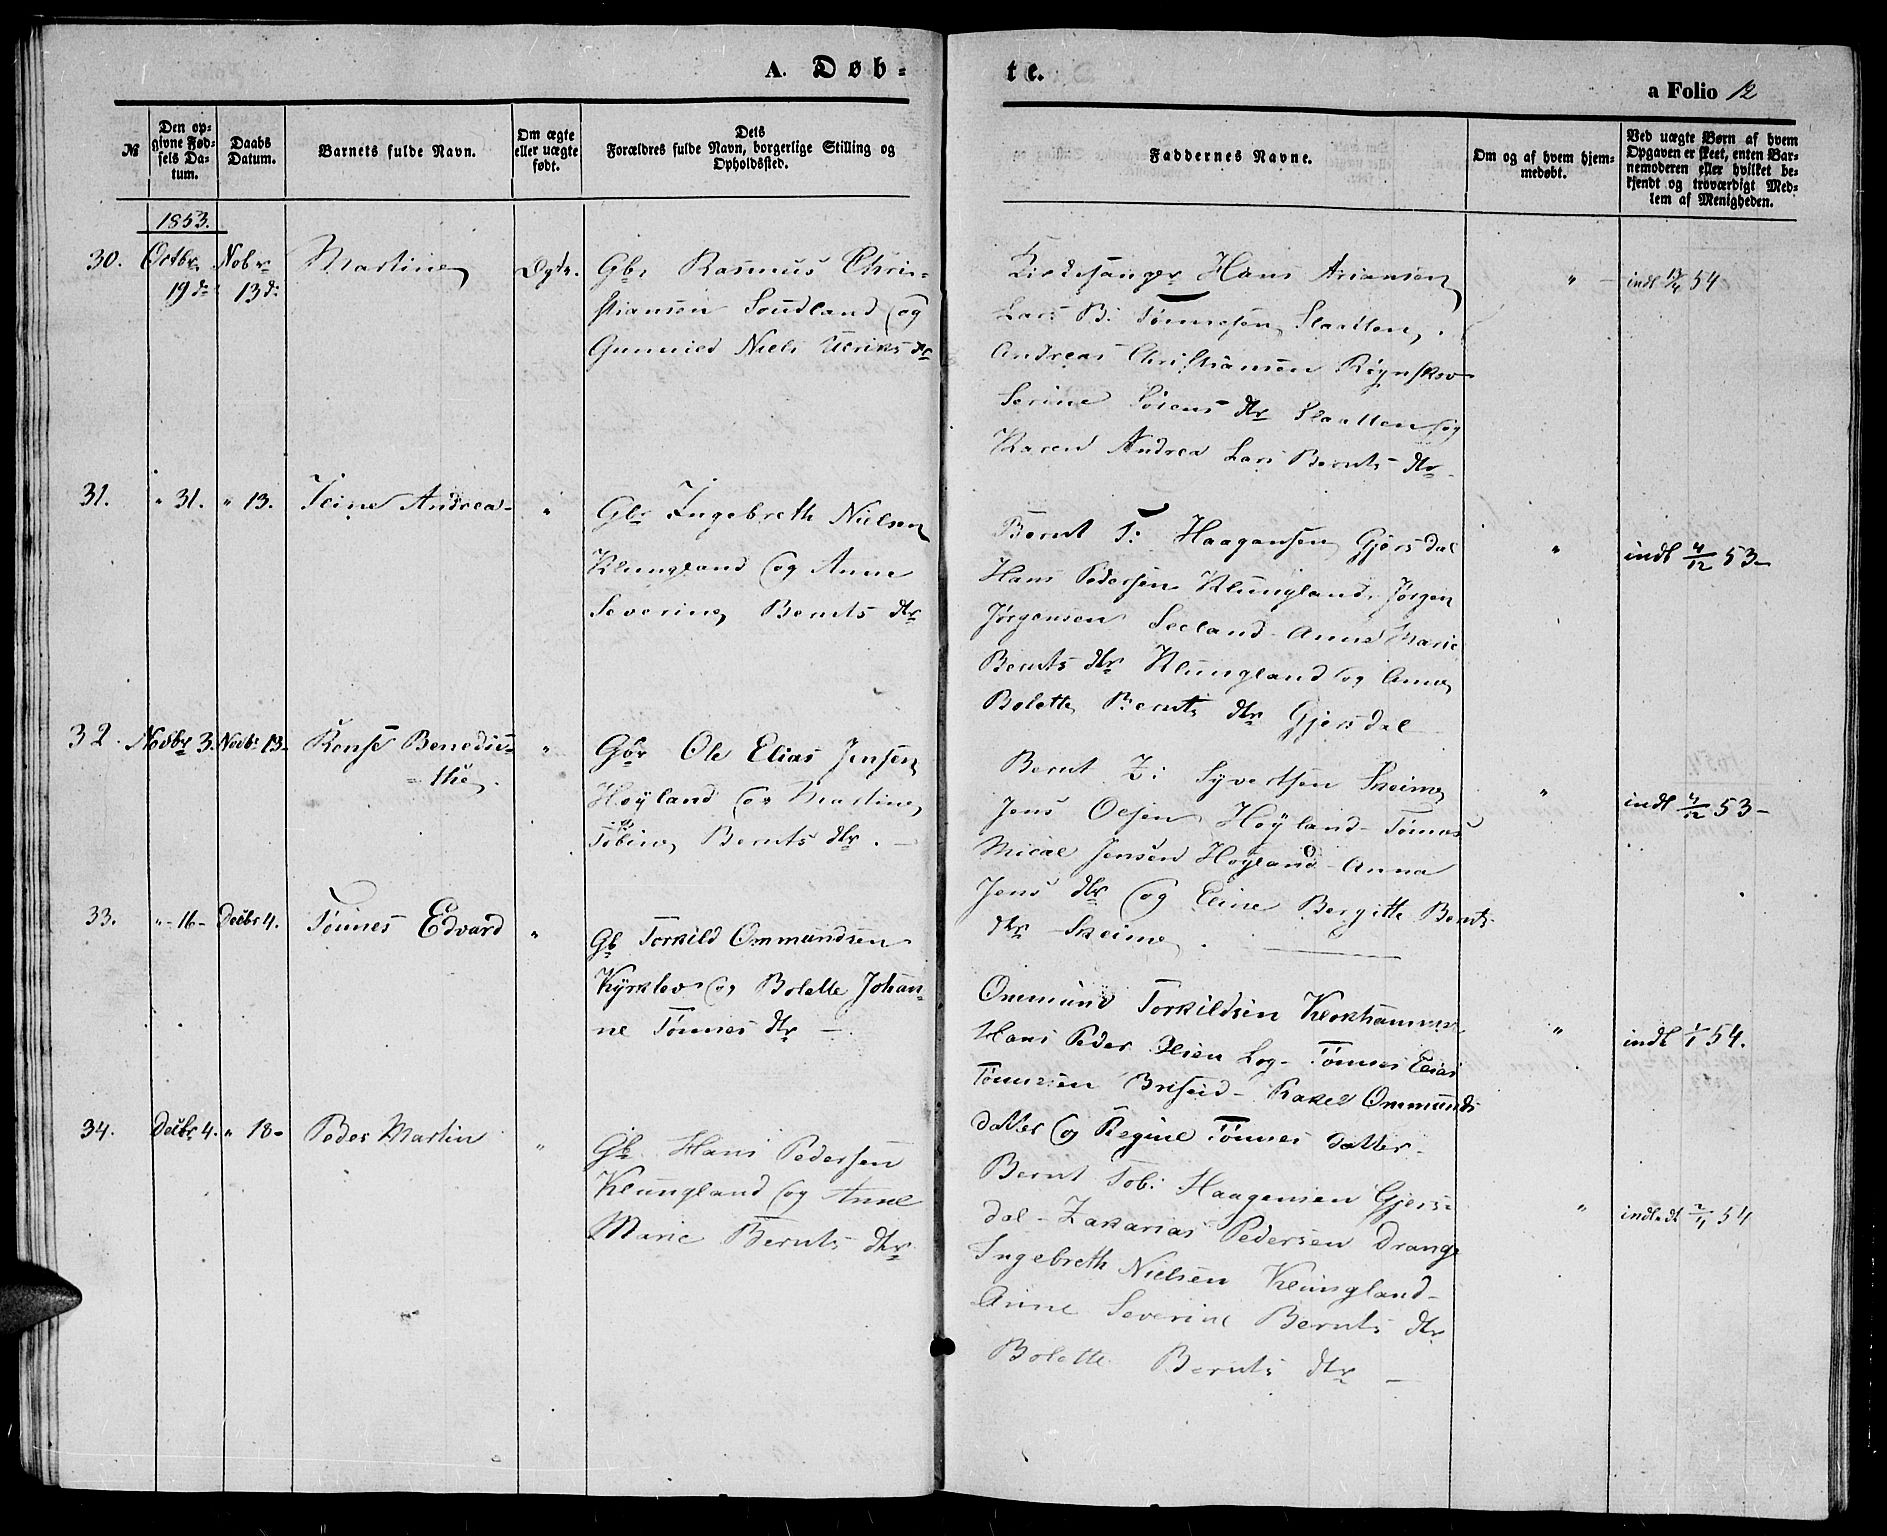 A. Døb-
te.
a Folio 12
№
Den op-
givne Fød-
sels Da-
tum.
Daabs
Datum.
Barnets fulde Navn.
Om ægte
eller uægte
født.
Dets
Forældres fulde Navn, borgerlige Stilling og
Opholdssted.
Faddernes Navne.
Om og af hvem hjem-
medøbt.
Ved uægte Børn af hvem
Opgaven er skeet, enten Bar-
nemoderen eller hvilket be-
kjendt og troværdigt Med-
lem af Menigheden.
1853.
30. Octbr. Nobr Martine
19de 13de
Gbr Rasmus Chri-
stiansen Soudland og
Gunnild Niels Ulriks dtr
Kirkesanger Hans Ariansen
Lars B. Tønnesen Slaatten,
Andreas Christiansen
Serine Sørens dtr Slaatten og
Karen Andrea Lars Bernts dtr
" indt 54
31. " 31. " 13. Andrea "
Gbr Ingebreth Nielsen
Klungland og Anne
Severine Bernts dtr
Bernt T: Haagensen Gjersdal
Hans Pedersen Klungland. Jørgen
Jørgensen Seeland - Anne Marie
Bernts dtr Klungland og Anne
Bolette Bernts dtr Gjersdal
" indt 4/12 53-
32. Novbr 3. Novbr 13. Benedic-
the. "
Gbr Ole Elias Jensen
Høyland og Martine
Tobine Bernts dtr. -
Bernt Z: Syvertsen Skeime
Jens Olsen Høyland - Tønnes
Mical Jensen Høyland - Anna
Jens dtr og Eline Bergitte Bernts
dtr Skeime.
" indt 4/12 53-
33. " 16 - Decbr 4. Tønnes Edvard "
Gb Torkild Ommundsen
og Bolette Johan-
ne Tønnes dtr -
Ommund Torkildsen
Hans Peder Olsen Log - Tønnes Elias
Tønnesen Briseid - Rakel Ommunds
datter og Regine Tønnes datter -
" indt 1/1 54.
34. Decbr 4. " 18 - Peder Martin "
Gb Hans Pedersen
Klungland og Anne
Marie Bernts dtr
Bernt Tob: Haagensen Gjers-
dal - Zakarias Pedersen Drange
Ingebreth Nielsen Klungland -
Anne Severine Bernts dtr
Bolette Bernts dtr -
" 54